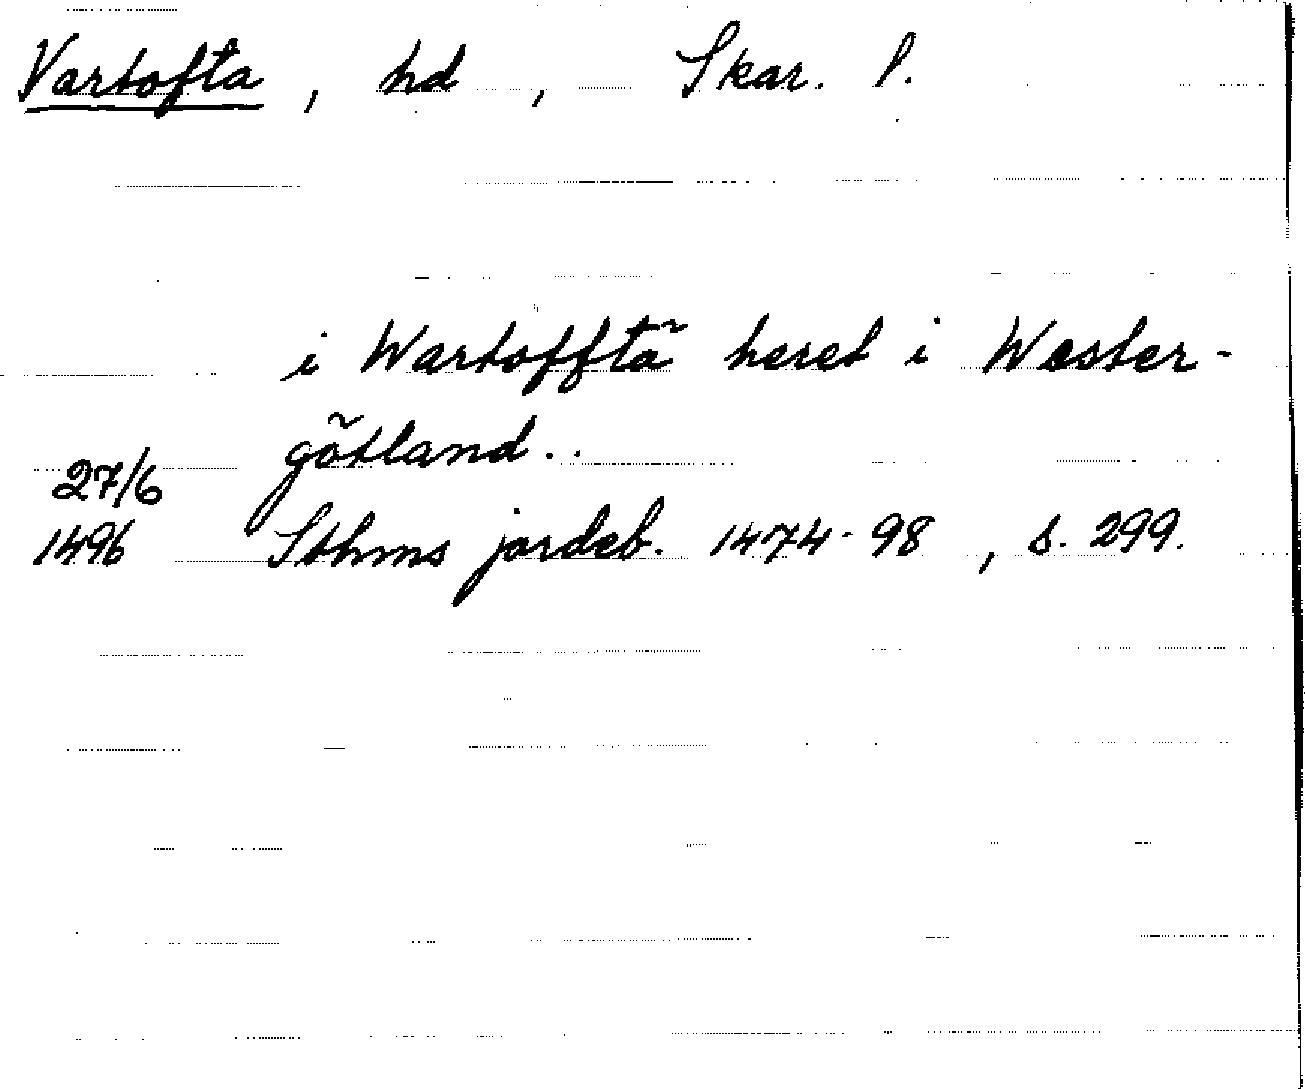 Vartofta, hd, Skar. l.
i Wartofftã heret i Wester-
götland..
27/6
1496 Sthms jordeb. 1474-98, s. 299.